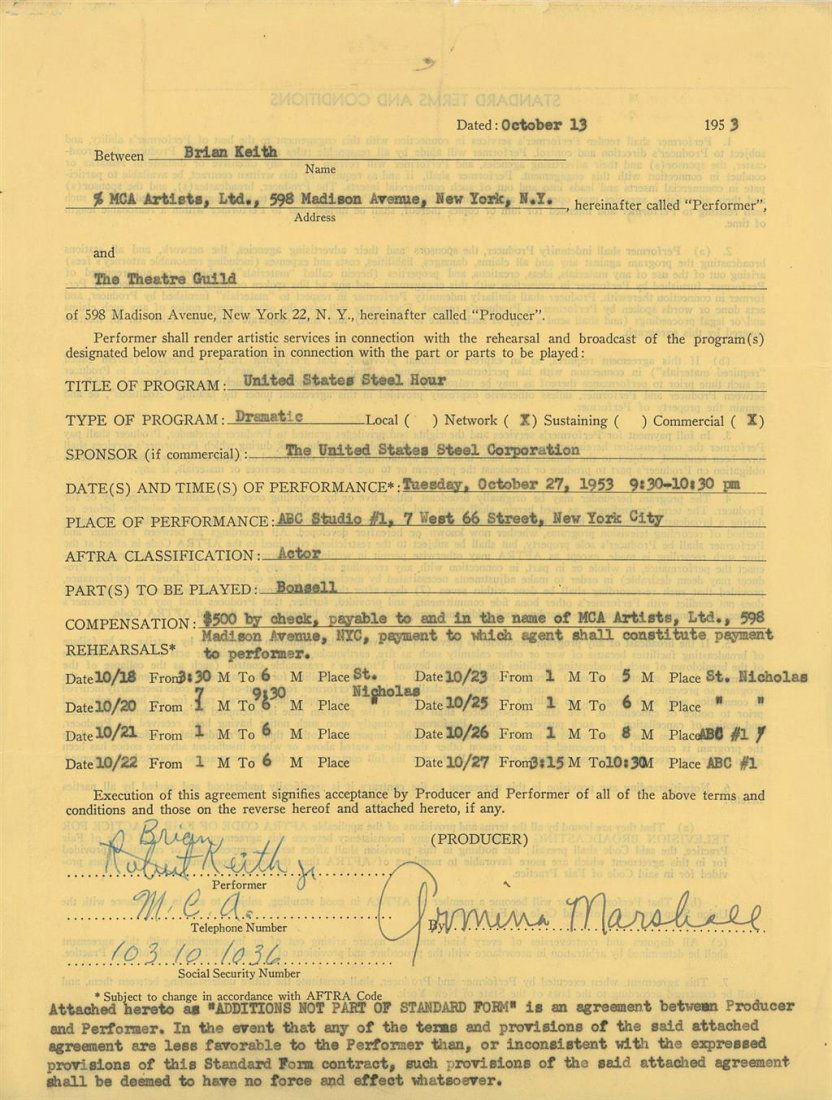 Dated: October 13 1953
Between Brian Keith
Name
% MCA Artists, Ltd., 598 Madison Avenue, New York, N.Y., hereinafter called "Performer",
Address
and
The Theatre Guild
of 598 Madison Avenue, New York 22, N. Y., hereinafter called "Producer".
Performer shall render artistic services in connection with the rehearsal and broadcast of the program(s)
designated below and preparation in connection with the part or parts to be played:
TITLE OF PROGRAM: United States Steel Hour
TYPE OF PROGRAM: Dramatic Local ( ) Network ( X) Sustaining ( ) Commercial ( X)
SPONSOR (if commercial): The United States Steel Corporation
DATE(S) AND TIME(S) OF PERFORMANCE*: Tuesday, October 27, 1953 9:30-10:30 pm
PLACE OF PERFORMANCE: ABC Studio #1, 7 West 66 Street, New York City
AFTRA CLASSIFICATION: Actor
PART(S) TO BE PLAYED: Bonsell
COMPENSATION: $500 by check, payable to and in the name of MCA Artists, Ltd., 598
Madison Avenue, NYC, payment to which agent shall constitute payment
REHEARSALS* to performer.
Date 10/18 From 3:30 M To 6 M Place St. Nicholas Date 10/23 From 1 M To 5 M Place St. Nicholas
7 9:30
Date 10/20 From 1 M To 6 M Place " Date 10/25 From 1 M To 6 M Place " "
Date 10/21 From 1 M To 6 M Place Date 10/26 From 1 M To 8 M Place ABC #1
Date 10/22 From 1 M To 6 M Place Date 10/27 From 3:15 M To 10:30 M Place ABC #1
Execution of this agreement signifies acceptance by Producer and Performer of all of the above terms and
conditions and those on the reverse hereof and attached hereto, if any.
(PRODUCER)
Brian
Robert Keith Jr
Performer
M. C. A.
Telephone Number
By Armina Marshall
103 10 1036
Social Security Number
* Subject to change in accordance with AFTRA Code
Attached hereto as "ADDITIONS NOT PART OF STANDARD FORM" is an agreement between Producer
and Performer. In the event that any of the terms and provisions of the said attached
agreement are less favorable to the Performer than, or inconsistent with the expressed
provisions of this Standard Form contract, such provisions of the said attached agreement
shall be deemed to have no force and effect whatsoever.